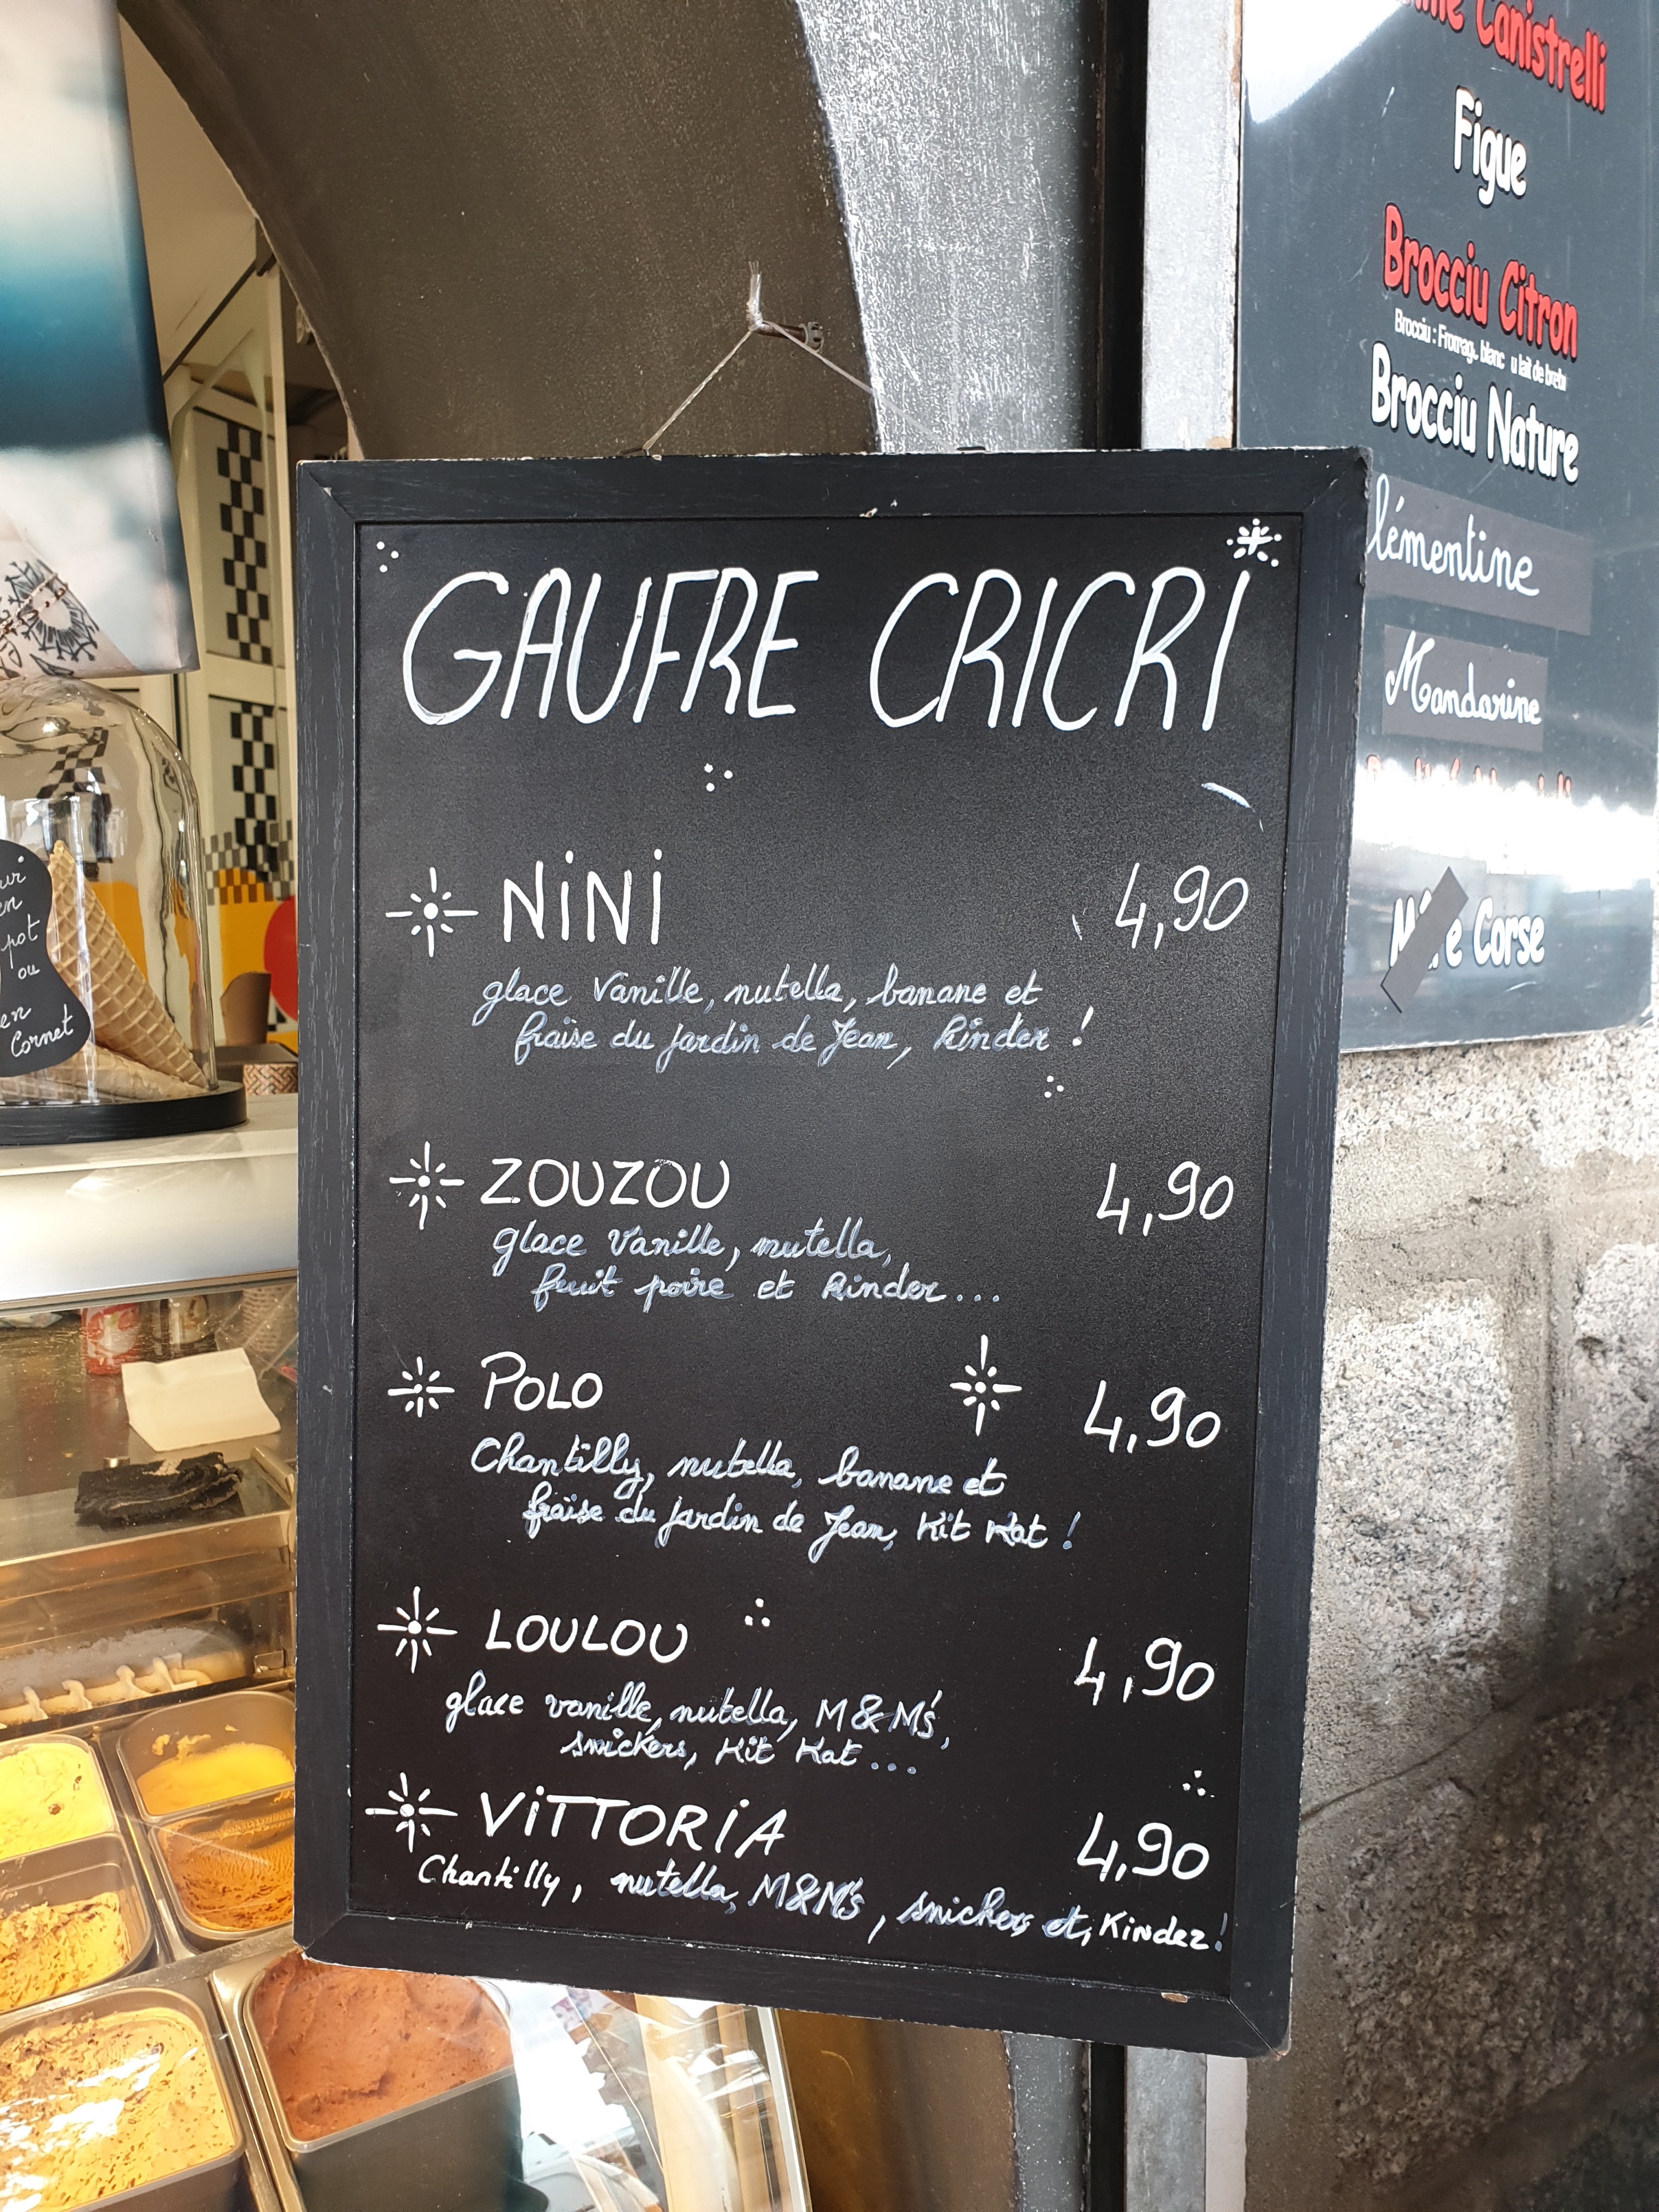 GAUFRE CRICRI
NiNi 4,90
glace Vanille, nutella, banane et
fraise du jardin de Jean, Kinder !
ZOUZOU 4,90
glace Vanille, nutella,
fruit poire et Kinder...
POLO 4,90
Chantilly, nutella, banane et
fraise du jardin de Jean, Kit Kat !
LOULOU 4,90
glace vanille, nutella, M&M's,
snickers, Kit Kat...
ViTTORiA 4,90
Chantilly, nutella, M&M's, snickers et, Kinder!
Canistrelli
Figue
Brocciu Citron
Brocciu Nature
lémentine
Mandarine
Corse
pot
ou
en
Cornet